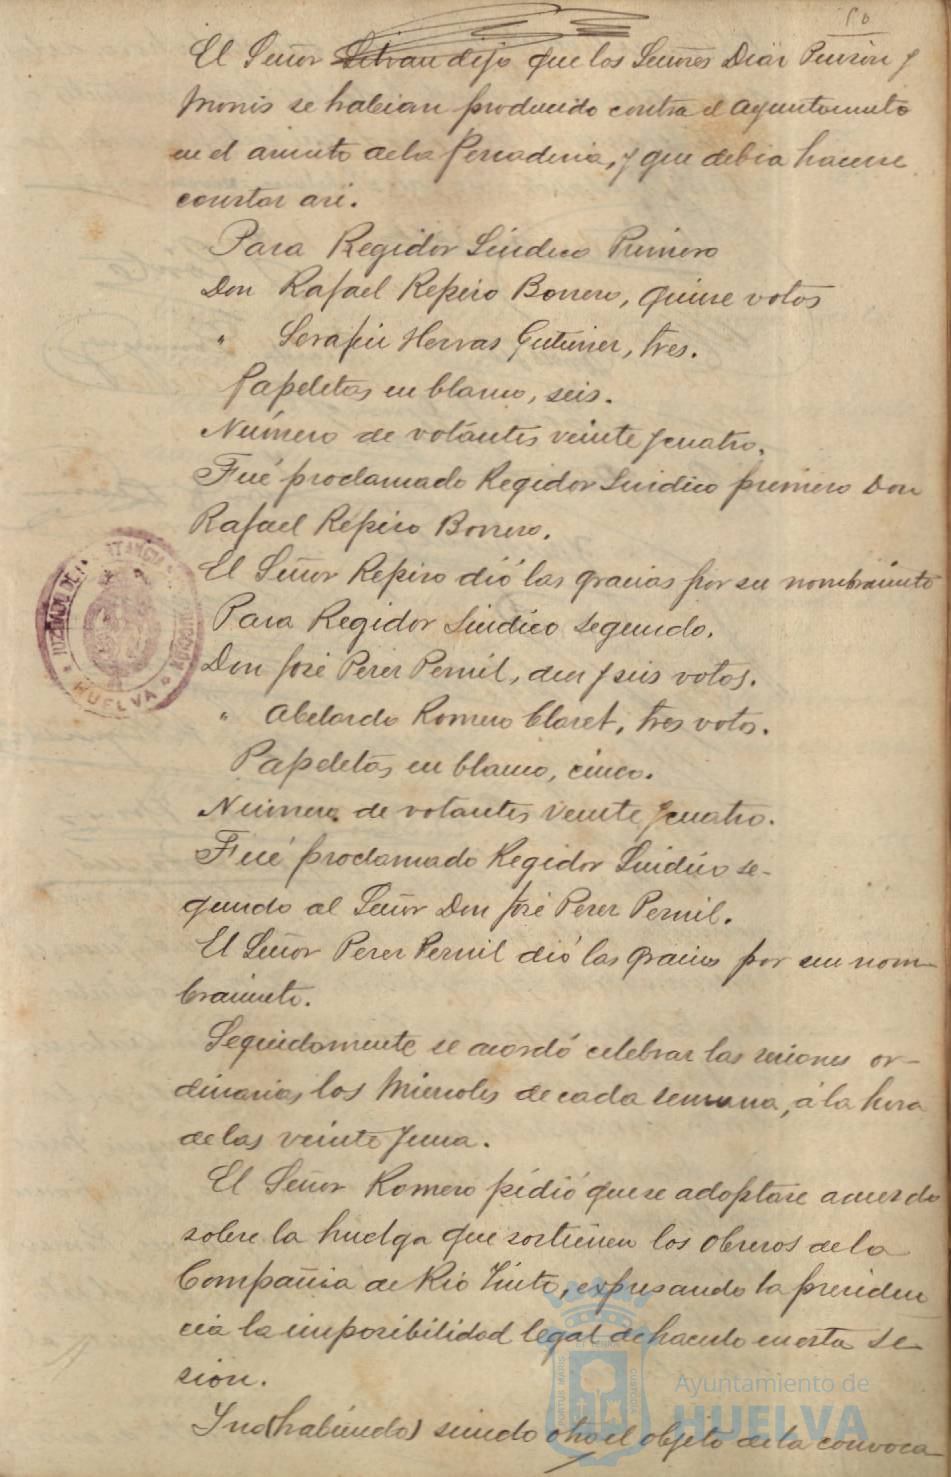 El Señor dijo que los Señores Diaz Pinzon y
Monis se habian producido contra el Ayuntamiento
en el asunto de la Pescaderia, y que debia hacerse
constar asi.
Para Regidor Sindico Primero
Don Rafael Repiso Borrero, quince votos
" Serafin Hervas Gutierrez, tres.
Papeletas en blanco, seis.
Número de votántes veinte y cuatro.
Fué proclamado Regidor Sindico primero Don
Rafael Repiso Borrero.
El Señor Repiso dió las gracias por su nombramiento
Para Regidor Sindico Segundo.
Don José Perez Pernil, diez y seis votos.
" Abelardo Romero Claret, tres votos.
Papeletas en blanco, cinco.
Número de votantes veinte y cuatro.
Fué proclamado Regidor Sindico se-
gundo al Señor Don José Perez Pernil.
El Señor Perez Pernil dió las gracias por su nom-
bramiento.
Seguidamente se acordó celebrar las sesiones or-
dinarias los Miercoles de cada semana, á la hora
de las veinte y una.
El Señor Romero pidió que se adoptase acuerdo
sobre la huelga que sostienen los Obreros de la
Compañia de Rio Tinto, expresando la presiden
cia la imposibilidad legal de hacerlo en esta se-
sion.
Y no (habiendo) siendo otro el objeto de la convoca
HUELVA
PORTUS MARIS
CUSTODIA
Ayuntamiento de
HUELVA